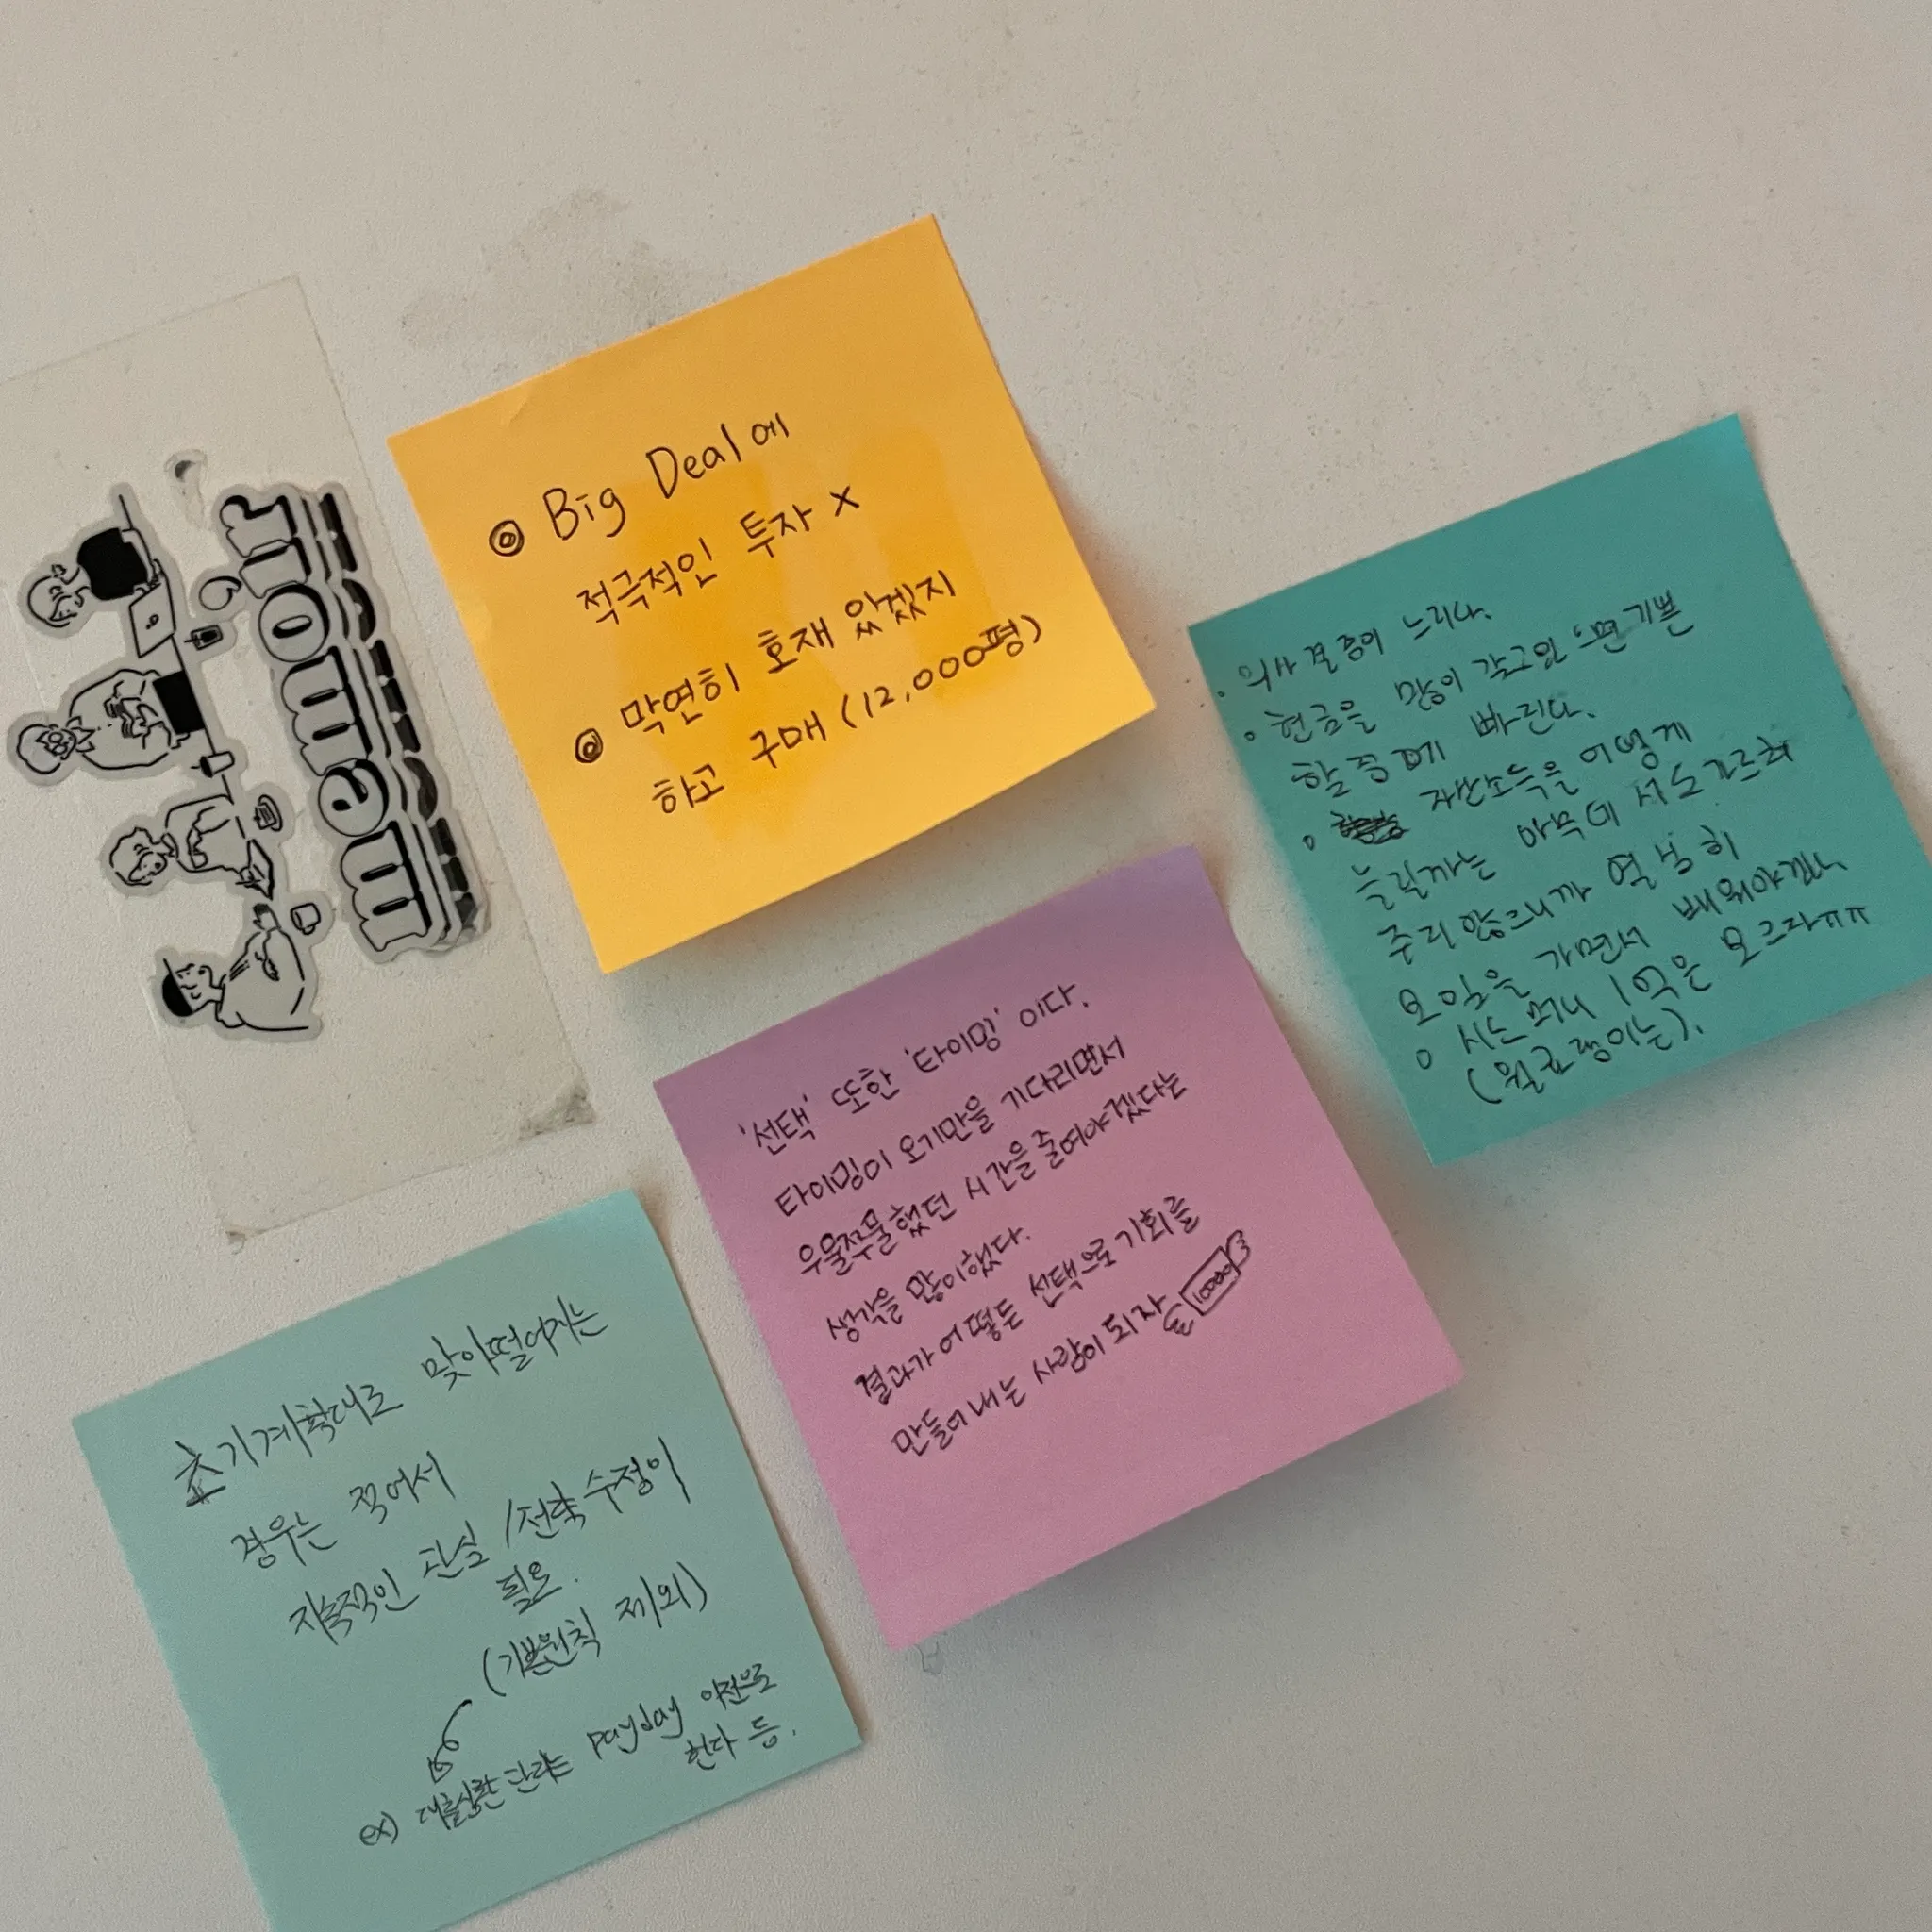 memoir
◎ Big Deal에
적극적인 투자 X
◎ 막연히 호재 있겠지
하고 구매 (12,000평)
· 의사결정이 느리다.
현금을 많이 갖고있으면 기쁜
빠진다.
자산소득을 어떻게
늘릴까는 아무데서도 가르쳐
주지 않으니까 열심히
모임을 가면서 배워야겠다
1억은 모르자ㅠㅠ
'선택' 또한 '타이밍' 이다.
타이밍이 오기만을 기다리면서
우물쭈물했던 시간을 줄여야겠다는
생각을 많이했다.
결과가 어떻든 선택으로 기회를
만들어 내는 사람이 되자
10000
초기계획대로 맞아떨어지는
경우는 적어서
지속적인 관심/전략수정이
필요.
(기본원칙 제외)
ex) 대출상환 단위는 payday 이전으로
한다 등.